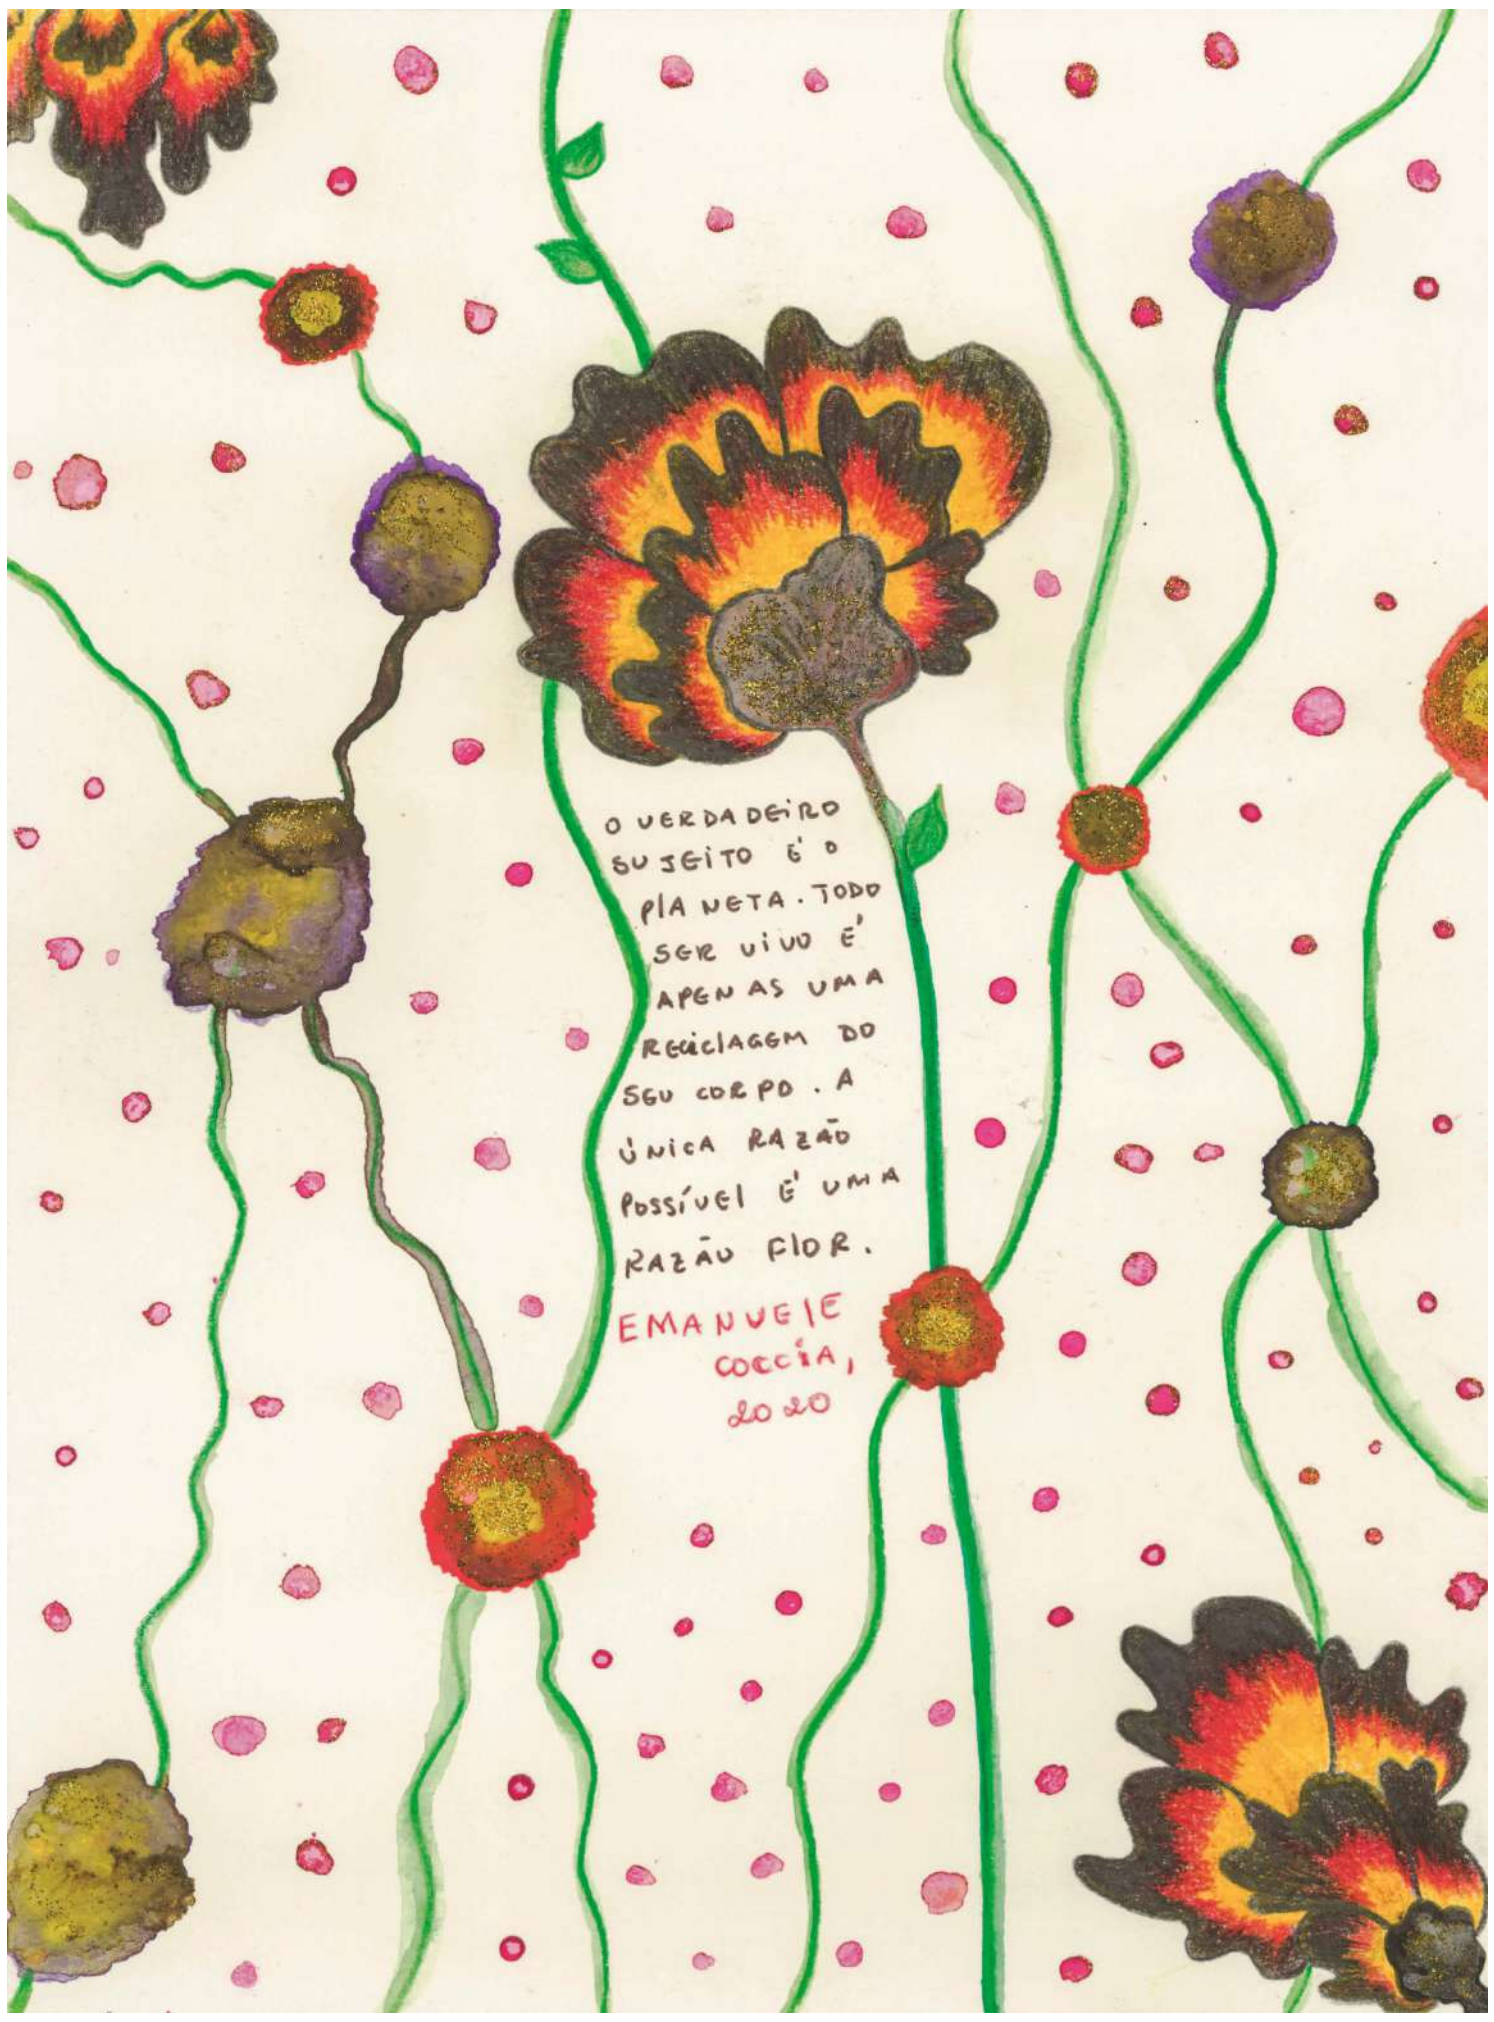 O VERDADEIRO
SUJEITO É O
PlANETA. TODO
SER VIVO É
APENAS UMA
RECIClAGEM DO
SEU CORPO. A
ÚNICA RAZÃO
POSSÍVEl É UMA
RAZÃO FlOR.
EMANUElE
COCCIA,
2020